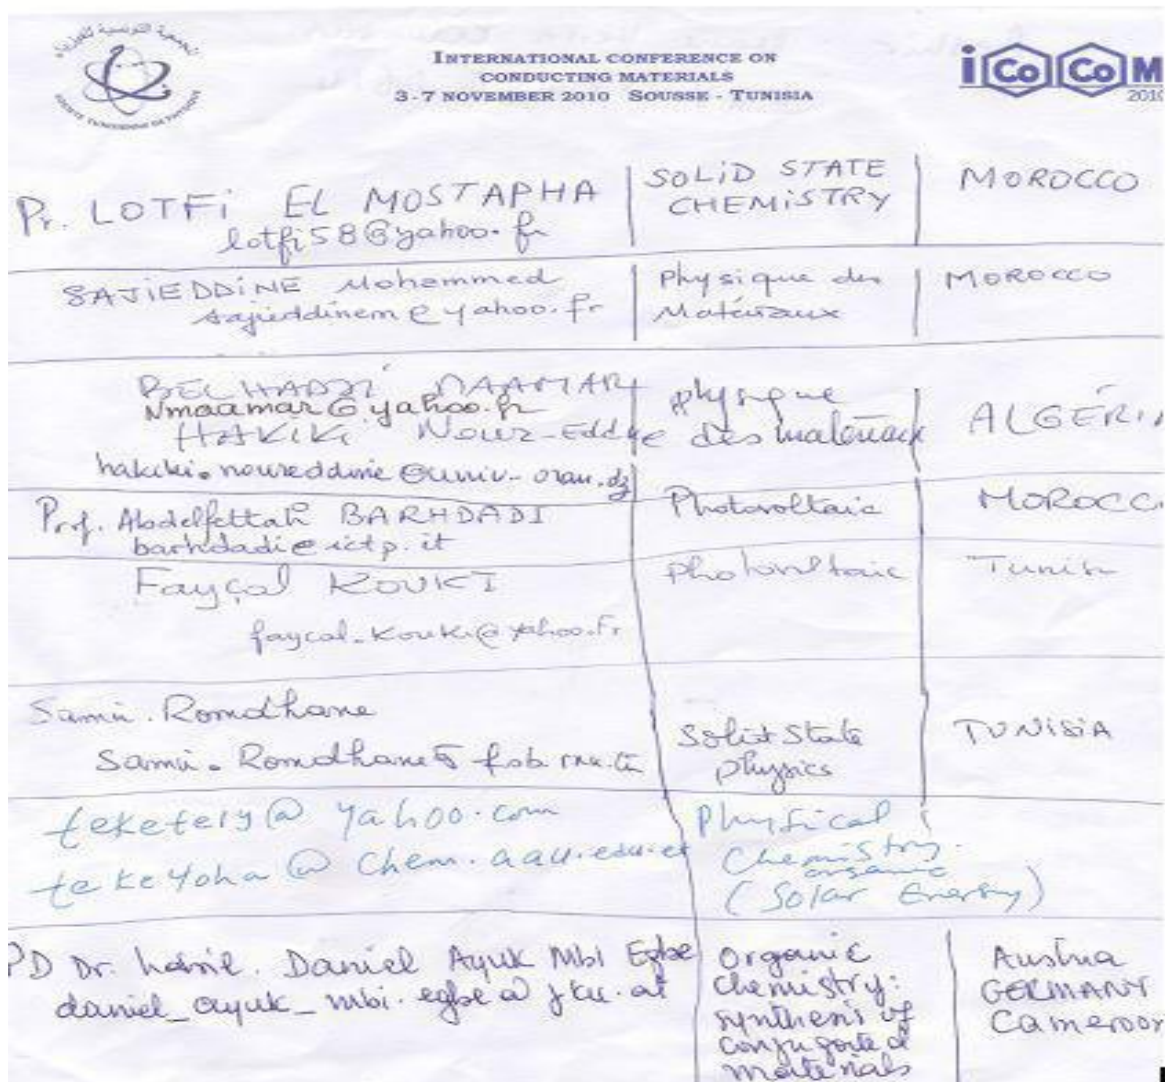 الجمعية التونسية للفيزياء
SOCIETE TUNISIENNE DE PHYSIQUE
INTERNATIONAL CONFERENCE ON
CONDUCTING MATERIALS
3-7 NOVEMBER 2010 SOUSSE - TUNISIA
iCoCoM
2010
Pr. LOTFi EL MOSTAPHA
lotfi58@yahoo.fr
SOLiD STATE
CHEMiSTRY
MOROCCO
SAJiEDDiNE Mohammed
sajieddinem@yahoo.fr
Physique des
Matériaux
MOROCCO
BELHADJI MAAMAR
Nmaamar@yahoo.fr
HAKIKI Nour-Eddine
hakiki.noureddine@univ-oran.dz
physique
des materiaux
ALGÉRIA
Prof. Abdelfettah BARHDADI
barhdadi@ictp.it
Photovoltaic
MOROCC
Fayçal KOUKI
faycal.kouki@yahoo.fr
photovoltaic
Tunisi
Samir. Romdhane
Samir.Romdhane@fsb.rnu.tn
Solid State
physics
TUNISIA
teketely@yahoo.com
tekeyoha@chem.aau.edu.et
Physical
Chemistry.
organic
(Solar Energy)
PD Dr. habil. Daniel Ayuk Mbi Egbe
daniel_ayuk_mbi.egbe@jku.at
Organic
chemistry:
synthesis of
conjugated
materials
Austria
GERMANY
Cameroon